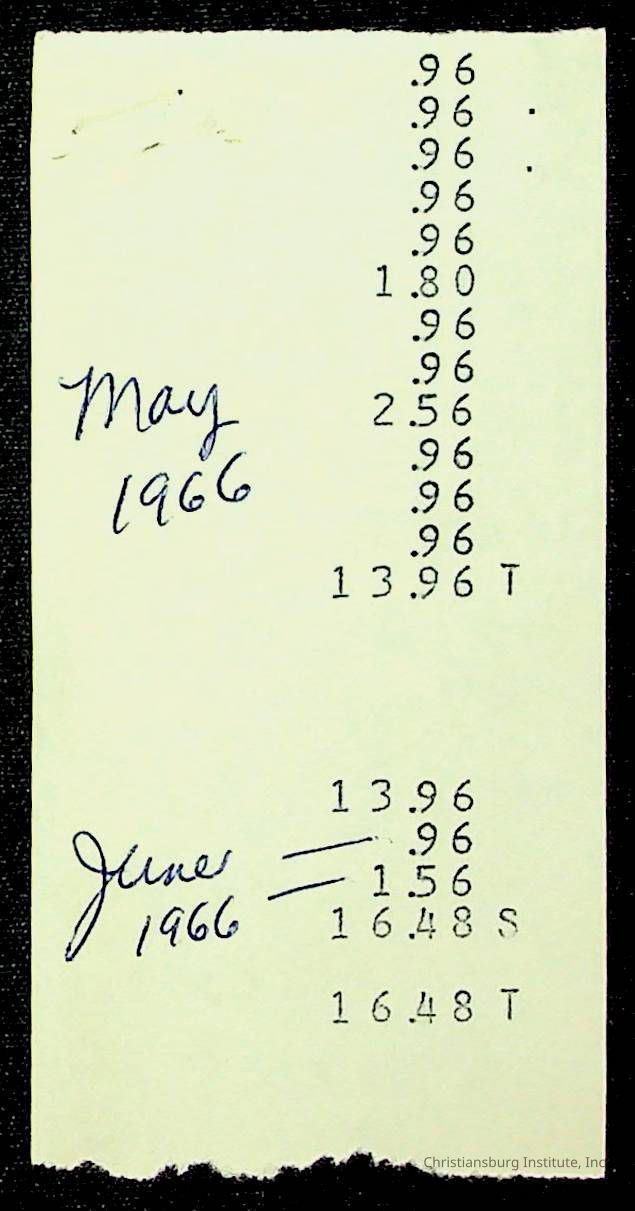 .96
.96
.96
.96
.96
1.80
.96
.96
2.56
.96
.96
.96
13.96 T
May
1966
13.96
.96
1.56
16.48 S
16.48 T
June
1966
Christiansburg Institute, Inc